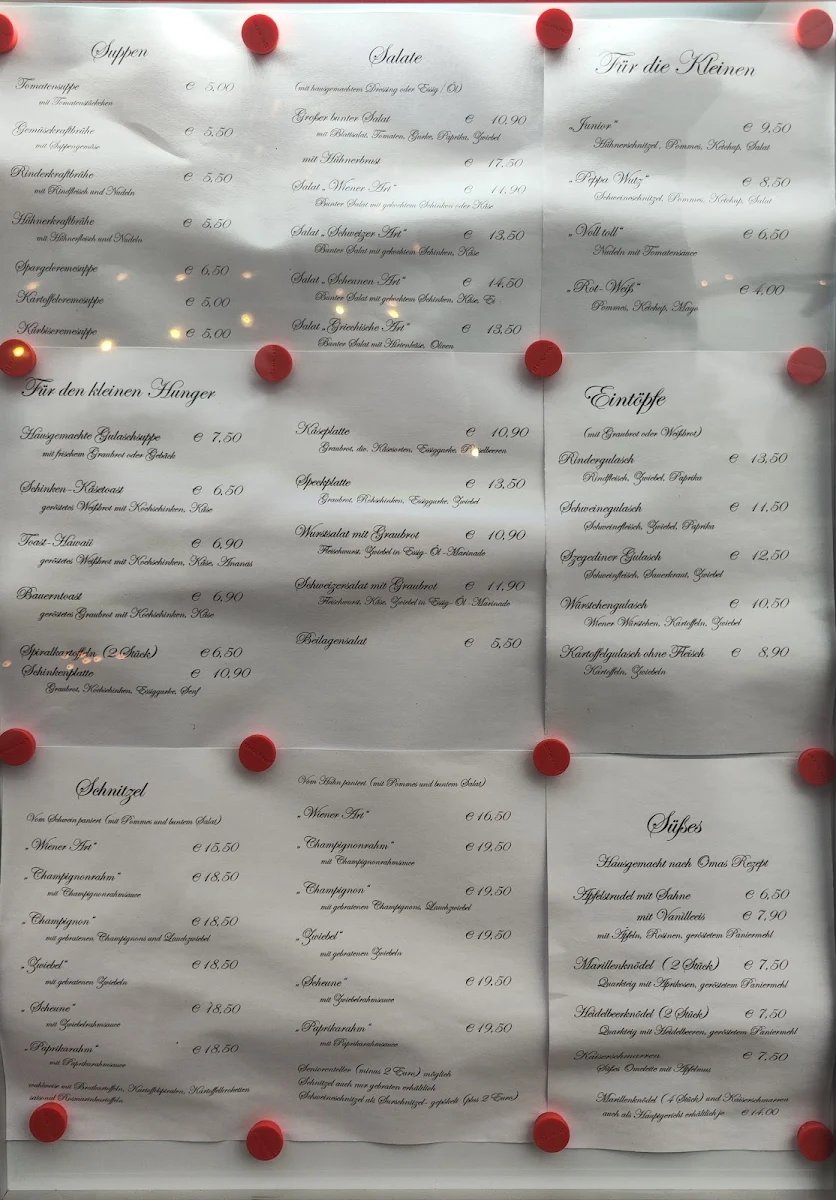 Suppen
Tomatensuppe € 5,00
mit Tomatenstückchen
Gemüsekraftbrühe € 5,50
mit Suppengemüse
Rinderkraftbrühe € 5,50
mit Rindfleisch und Nudeln
Hühnerkraftbrühe € 5,50
mit Hühnerfleisch und Nudeln
Spargelcremesuppe € 6,50
Kartoffelcremesuppe € 5,00
Kürbiscremesuppe € 5,00
Salate
(mit hausgemachtem Dressing oder Essig / Öl)
Großer bunter Salat € 10,90
mit Blattsalat, Tomaten, Gurke, Paprika, Zwiebel
mit Hühnerbrust € 17,50
Salat „Wiener Art" € 11,90
Bunter Salat mit gekochtem Schinken oder Käse
Salat „Schweizer Art" € 13,50
Bunter Salat mit gekochtem Schinken, Käse
Salat „Scheunen Art" € 14,50
Bunter Salat mit gekochtem Schinken, Käse, Ei
Salat „Griechische Art" € 13,50
Bunter Salat mit Hirtenkäse, Oliven
Für die Kleinen
„Junior" € 9,50
Hühnerschnitzel, Pommes, Ketchup, Salat
„Peppa Wutz" € 8,50
Schweineschnitzel, Pommes, Ketchup, Salat
„Voll toll" € 6,50
Nudeln mit Tomatensauce
„Rot-Weiß" € 4,00
Pommes, Ketchup, Mayo
Für den kleinen Hunger
Hausgemachte Gulaschsuppe € 7,50
mit frischem Graubrot oder Gebäck
Schinken-Käsetoast € 6,50
geröstetes Weißbrot mit Kochschinken, Käse
Toast-Hawaii € 6,90
geröstetes Weißbrot mit Kochschinken, Käse, Ananas
Bauerntoast € 6,90
geröstetes Graubrot mit Kochschinken, Käse
Spiralkartoffeln (2 Stück) € 6,50
Schinkenplatte € 10,90
Graubrot, Kochschinken, Essiggurke, Senf
Käseplatte € 10,90
Graubrot, div. Käsesorten, Essiggurke, Preiselbeeren
Speckplatte € 13,50
Graubrot, Rohschinken, Essiggurke, Zwiebel
Wurstsalat mit Graubrot € 10,90
Fleischwurst, Zwiebel in Essig-Öl-Marinade
Schweizersalat mit Graubrot € 11,90
Fleischwurst, Käse, Zwiebel in Essig-Öl-Marinade
Beilagensalat € 5,50
Eintöpfe
(mit Graubrot oder Weißbrot)
Rindergulasch € 13,50
Rindfleisch, Zwiebel, Paprika
Schweinegulasch € 11,50
Schweinefleisch, Zwiebel, Paprika
Szegediner Gulasch € 12,50
Schweinfleisch, Sauerkraut, Zwiebel
Würstchengulasch € 10,50
Wiener Würstchen, Kartoffeln, Zwiebel
Kartoffelgulasch ohne Fleisch € 8,90
Kartoffeln, Zwiebeln
Schnitzel
Vom Schwein paniert (mit Pommes und buntem Salat)
„Wiener Art" € 15,50
„Champignonrahm" € 18,50
mit Champignonrahmsauce
„Champignon" € 18,50
mit gebratenen Champignons und Lauchzwiebel
„Zwiebel" € 18,50
mit gebratenen Zwiebeln
„Scheune" € 18,50
mit Zwiebelrahmsauce
„Paprikarahm" € 18,50
mit Paprikarahmsauce
wahlweise mit Bratkartoffeln, Kartoffelspiralen, Kartoffelkroketten
saisonal Rosmarinkartoffeln
Vom Huhn paniert (mit Pommes und buntem Salat)
„Wiener Art" € 16,50
„Champignonrahm" € 19,50
mit Champignonrahmsauce
„Champignon" € 19,50
mit gebratenen Champignons, Lauchzwiebel
„Zwiebel" € 19,50
mit gebratenen Zwiebeln
„Scheune" € 19,50
mit Zwiebelrahmsauce
„Paprikarahm" € 19,50
mit Paprikarahmsauce
Seniorenteller (minus 2 Euro) möglich
Schnitzel auch nur gebraten erhältlich
Schweineschnitzel als Surschnitzel-gepökelt (plus 2 Euro)
Süßes
Hausgemacht nach Omas Rezept
Apfelstrudel mit Sahne € 6,50
mit Vanilleeis € 7,90
mit Äpfeln, Rosinen, geröstetem Paniermehl
Marillenknödel (2 Stück) € 7,50
Quarkteig mit Aprikosen, geröstetem Paniermehl
Heidelbeerknödel (2 Stück) € 7,50
Quarkteig mit Heidelbeeren, geröstetem Paniermehl
Kaiserschmarren € 7,50
Süßes Omelette mit Apfelmus
Marillenknödel (4 Stück) und Kaiserschmarren
auch als Hauptgericht erhältlich je € 14,00